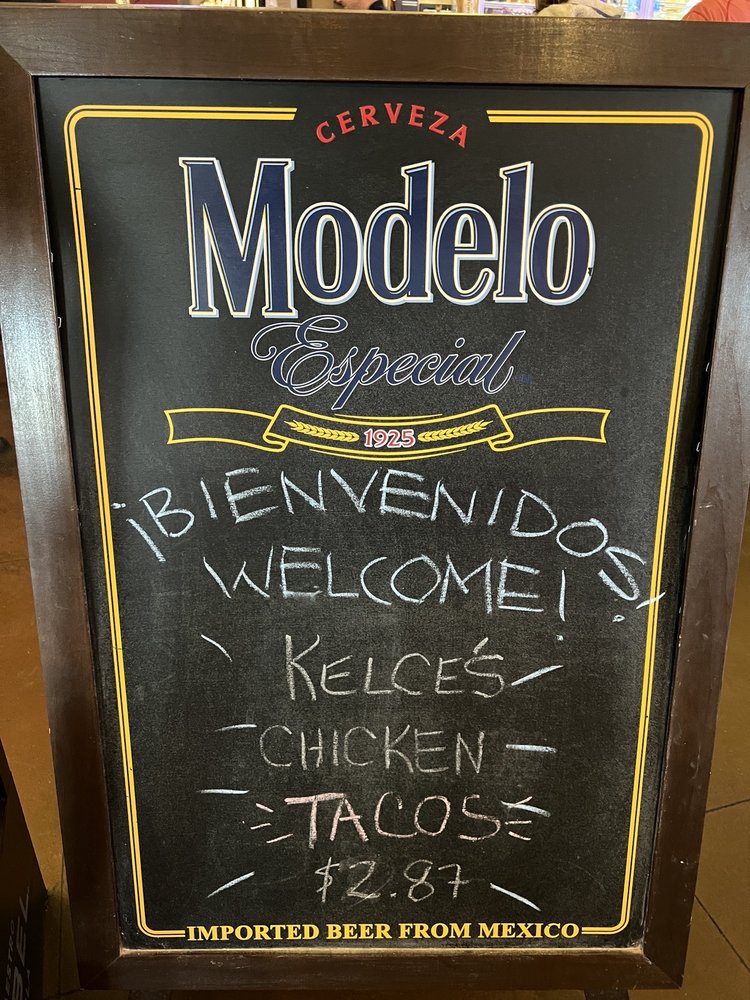 CERVEZA
Modelo
Especial
1925
¡BIENVENIDOS!
WELCOME!
KELCE'S
CHICKEN
TACOS
$2.87
IMPORTED BEER FROM MEXICO